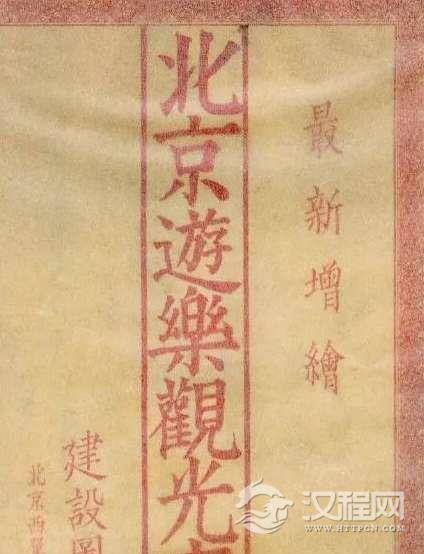 最新增繪
北京遊樂觀光
建設圖
北京西單
汉程网
WWW.HTTPCN.COM